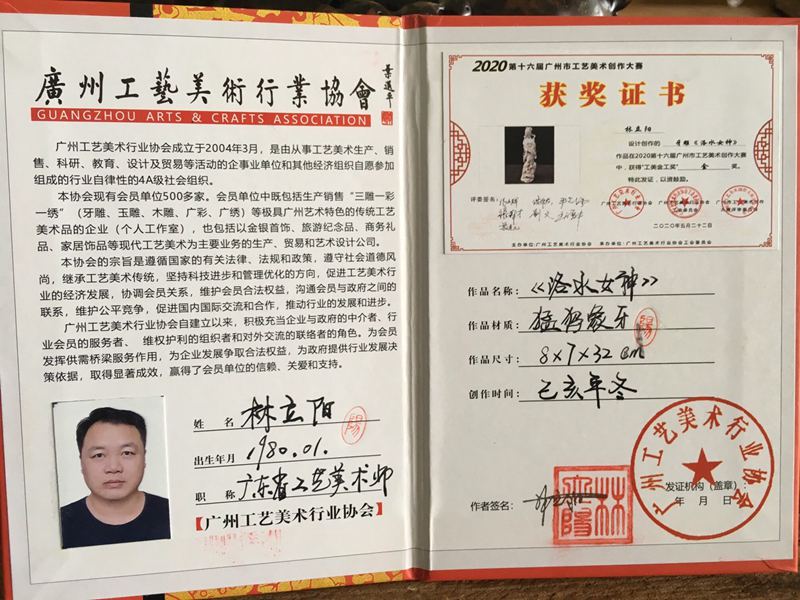 廣州工藝美術行業協會
GUANGZHOU ARTS & CRAFTS ASSOCIATION
广州工艺美术行业协会成立于2004年3月，是由从事工艺美术生产、销
售、科研、教育、设计及贸易等活动的企事业单位和其他经济组织自愿参加
组成的行业自律性的4A级社会组织。
本协会现有会员单位500多家。会员单位中既包括生产销售“三雕一彩
一绣”（牙雕、玉雕、木雕、广彩、广绣）等极具广州艺术特色的传统工艺
美术品的企业（个人工作室），也包括以金银首饰、旅游纪念品、商务礼
品、家居饰品等现代工艺美术为主要业务的生产、贸易和艺术设计公司。
本协会的宗旨是遵循国家的有关法律、法规和政策，遵守社会道德风
尚，继承工艺美术传统，坚持科技进步和管理优化的方向，促进工艺美术行
业的经济发展，协调会员关系，维护会员合法权益，沟通会员与政府之间的
联系，维护公平竞争，促进国内国际交流和合作，推动行业的发展和进步。
广州工艺美术行业协会自建立以来，积极充当企业与政府的中介者、行
业会员的服务者、维权护利的组织者和对外交流的联络者的角色。为会员
发挥供需桥梁服务作用，为企业发展争取合法权益，为政府提供行业发展决
策依据，取得显著成效，赢得了会员单位的信赖、关爱和支持。
姓 名 林立阳
出生年月 1980.01.
职 称 广东省工艺美术师
【广州工艺美术行业协会】
2020第十六届广州市工艺美术创作大赛
获奖证书
林立阳
设计创作的 牙雕《洛水女神》
作品在2020第十六届广州市工艺美术创作大赛
中，获得“工美金工奖” 金 奖。
特此发证，以资鼓励。
评委签名：
二〇二〇年五月二十二日
主办单位：广州工艺美术行业协会 承办单位：广州工艺美术行业协会工业委员会
作品名称： 《洛水女神》
作品材质： 猛犸象牙
作品尺寸： 8×7×32cm
创作时间： 己亥年冬
作者签名：
林立陽
广州工艺美术行业协会
发证机构（盖章）：
年 月 日